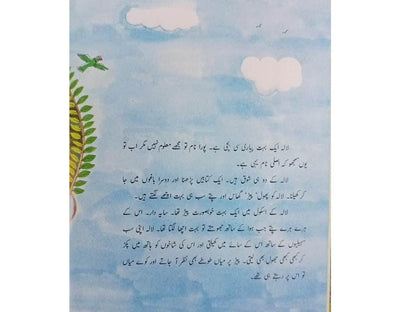 لالہ ایک بہت پیاری سی بچی ہے۔ پورا نام تو مجھے معلوم نہیں مگر اب تو
یوں سمجھو کہ اصلی نام یہی ہے۔
لالہ کے دو ہی شوق ہیں۔ ایک کتابیں پڑھنا اور دوسرا باغوں میں جا
کر کھیلنا۔ لالہ کو پھول، پیڑ، گھاس اور پتے سب ہی بہت اچھے لگتے ہیں۔
لالہ کے اسکول میں ایک بہت خوبصورت پیڑ تھا۔ سایہ دار۔ اس کے
ہرے ہرے پتے جب ہوا کے ساتھ جھومتے تو بہت اچھا لگتا تھا۔ لالہ اپنی سب
سہیلیوں کے ساتھ اس کے سائے میں کھیلتی اور اس کی شاخوں کو ہاتھ میں پکڑ
کر کبھی کبھی جھول بھی لیتی۔ پیڑ پر میاں طوطے بھی نظر آ جاتے اور کوے میاں
تو اس پر رہتے ہی تھے۔